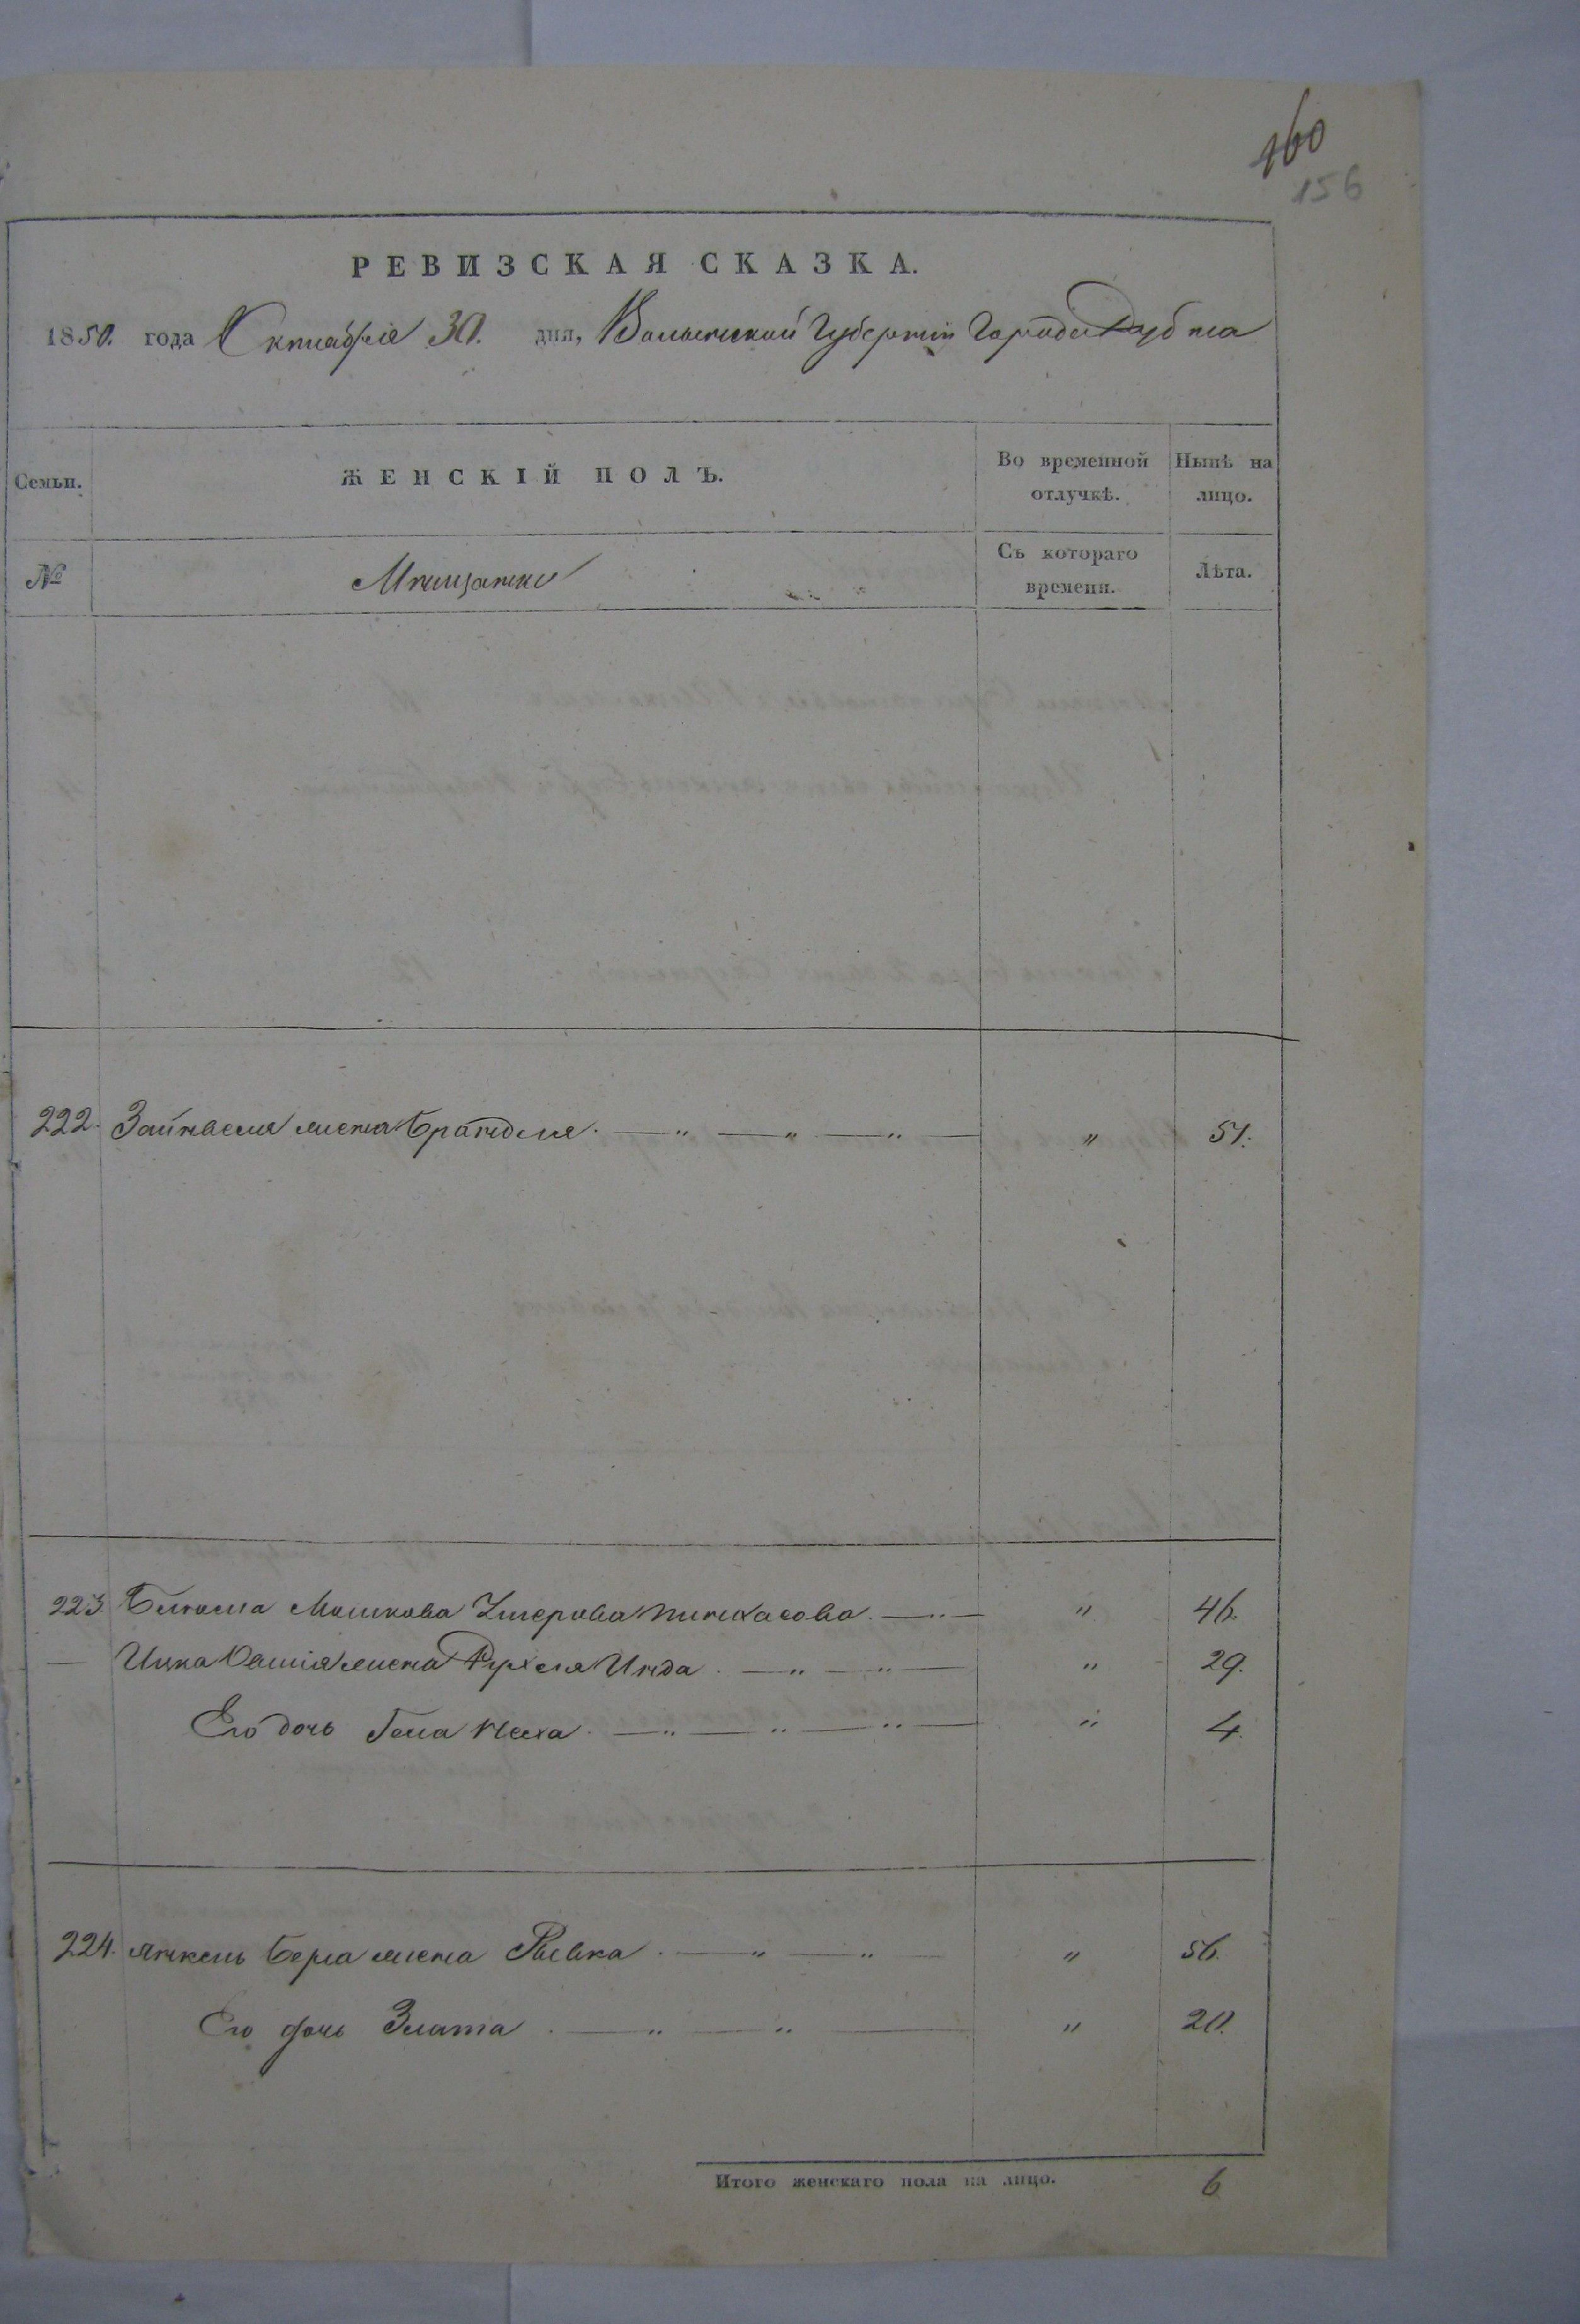 160
156
РЕВИЗСКАЯ СКАЗКА.
1850. года Октября 30. дня, Волынской Губерніи Города Дубна
Семьи.
ЖЕНСКІЙ ПОЛЪ.
Во временной отлучкѣ.
Нынѣ на лицо.
№
Мѣщанки
Съ котораго времени.
Лѣта.
222. Зайнвеля жена Брандля. — " — " — " — " 51.
223 Мошкова Умерова Пинхасова. — " — " 46.
— Ицка жена Рухля Инда. — " — " — " 29.
Его дочь Геня Неха. — " — " — " — " 4.
224. Янкель Бера жена Рывка. — " — " — " 56.
Его дочь Злата. — " — " — " 20.
Итого женскаго пола на лицо. 6